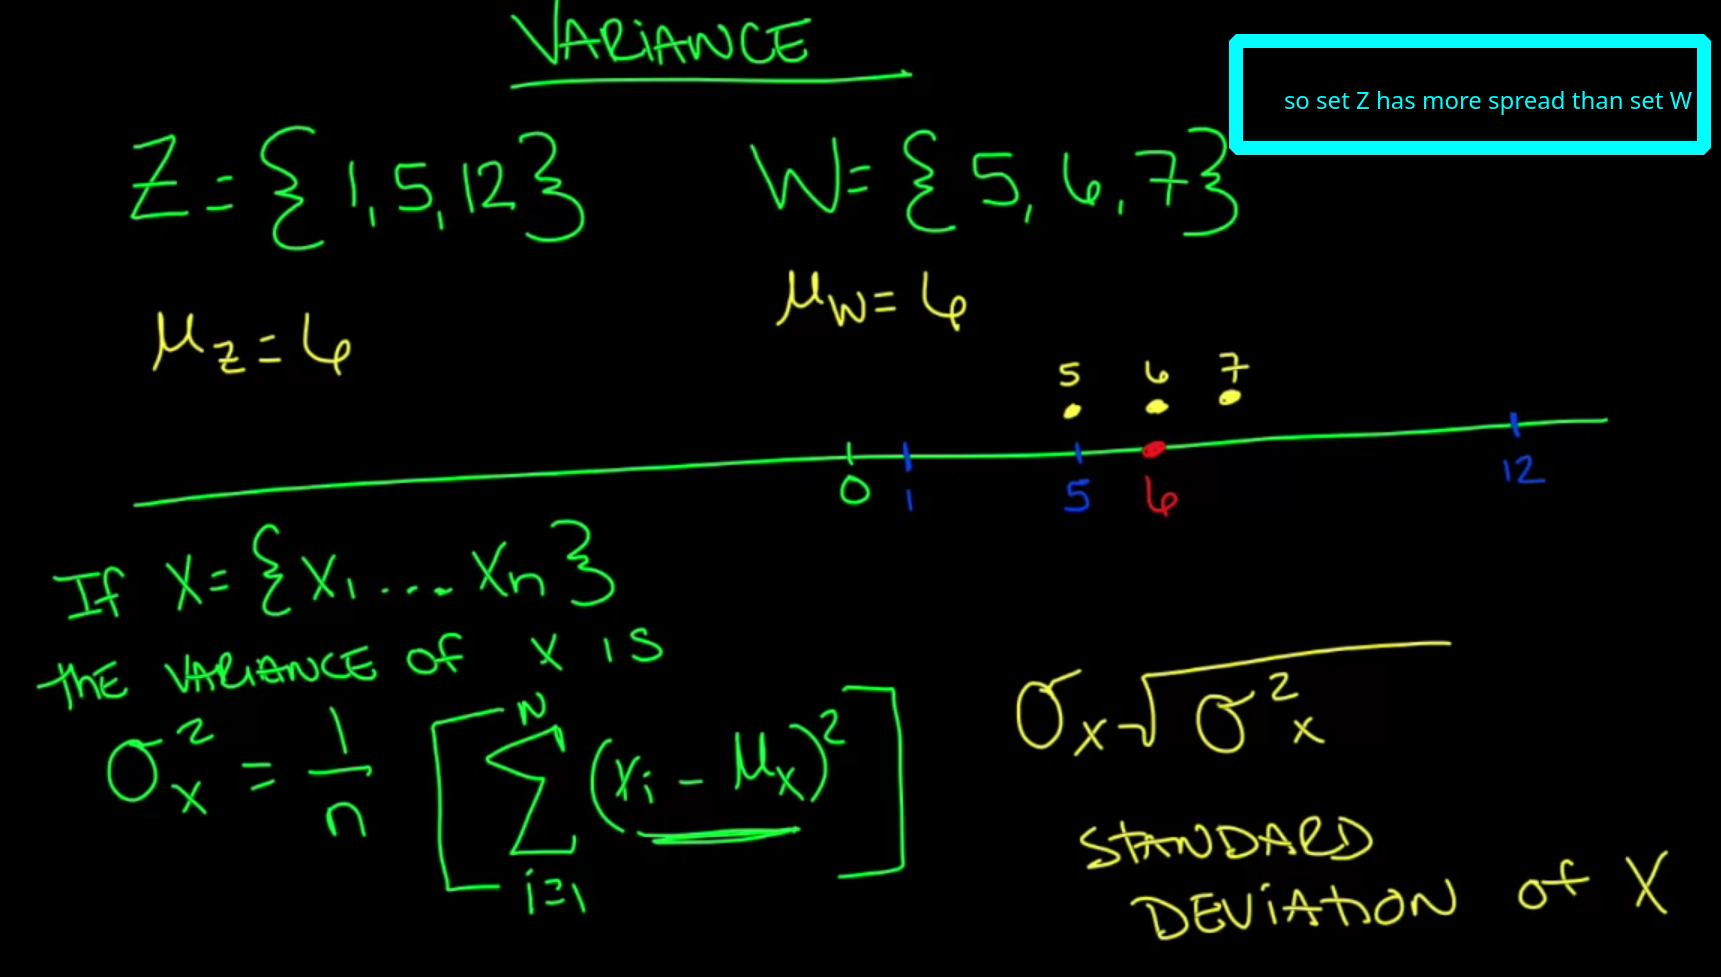 VARIANCE
so set Z has more spread than set W
Z = { 1, 5, 12 }
W = { 5, 6, 7 }
μ_Z = 6
μ_W = 6
5 6 7
0 1 5 6 12
If X = { X₁ ... Xₙ }
THE VARIANCE of X IS
σ²ₓ = 1/n [ Σ (xᵢ - μₓ)² ]
N
i=1
σₓ √σ²ₓ
STANDARD
DEVIATION of X